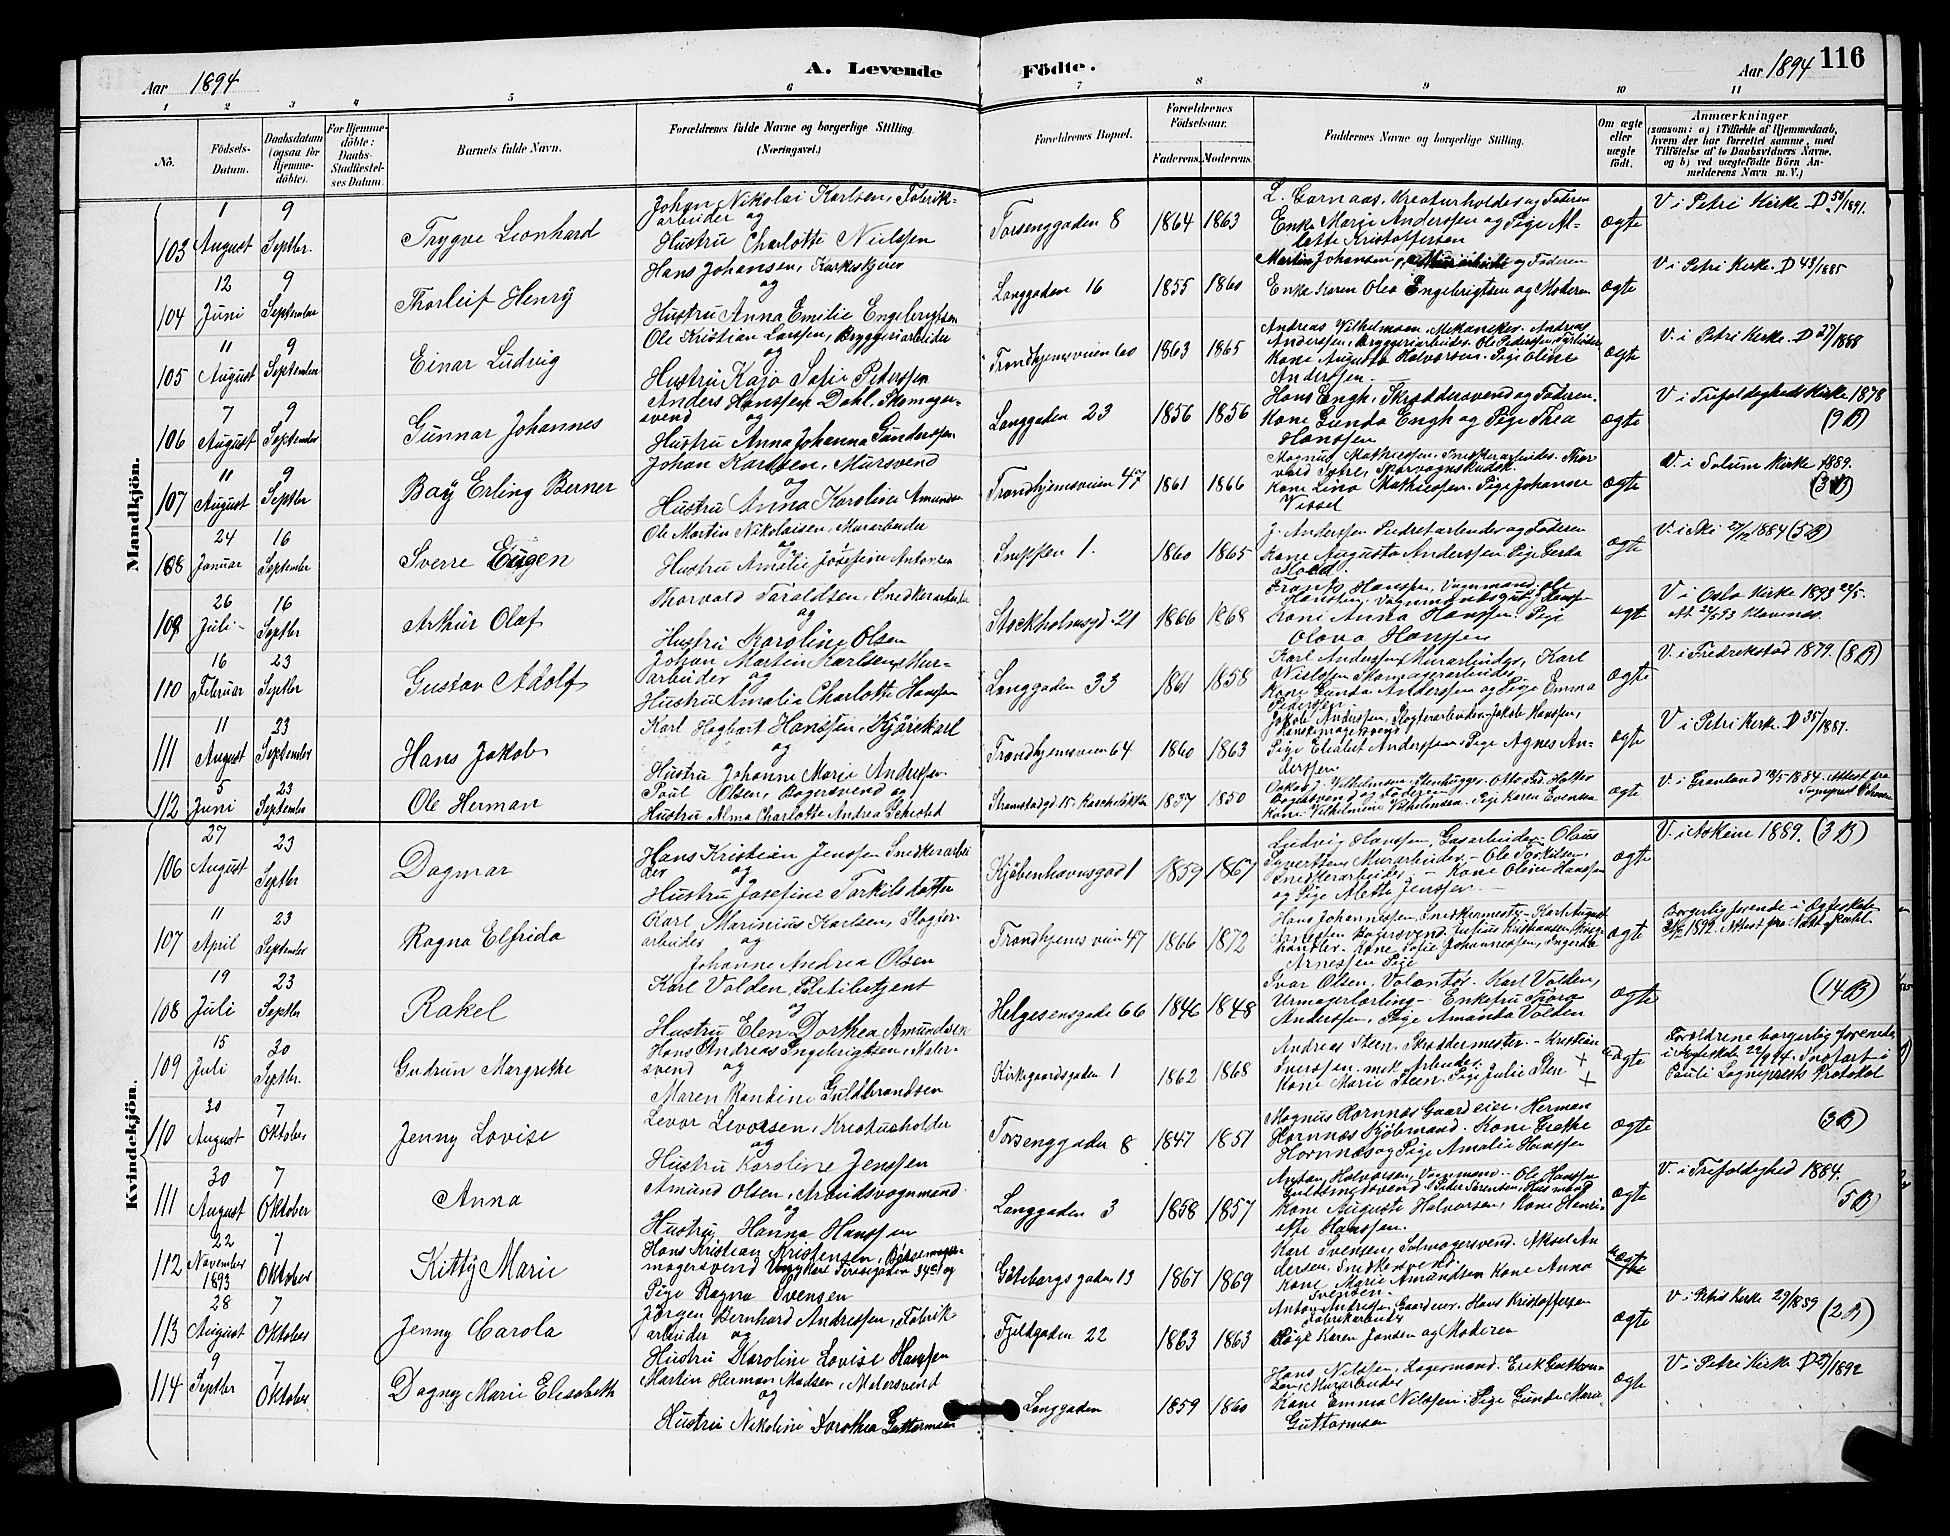 Aar 1894
A. Levende Födte.
Aar 1894 116
1 2 3 4 5 6 7 8 9 10 11
No.
Födsels-Datum.
Daabsdatum (ogsaa for Hjemmedöbte).
For Hjemmedöbte: Daabs-Stadfæstelses Datum.
Barnets fulde Navn.
Forældrenes fulde Navne og borgerlige Stilling. (Næringsvei.)
Forældrenes Bopæl.
Forældrenes Födselsaar.
Faderens. Moderens.
Faddernes Navne og borgerlige Stilling.
Om ægte eller uægte födt.
Anmærkninger
(saasom: a) i Tilfælde af Hjemmedaab, hvem der har forrettet samme, med Tilföielse af to Daabsvidners Navne, og b) ved uægtefödte Börn Anmelderens Navn m. V.)
Mandkjön.
103 1 August 9 Septbr. Trygve Leonhard
Johan Nikolai Karlsen, Fabrik-
arbeider og
Hustru Charlotte Nielssen
Torsenggaden 8 1864 1863
L. Garnaas, Kreaturholder og Faderen
Enke Marie Anderssen og Pige Al-
lette Kristoffersen
ægte V. i Petri Kirke. D. 50/1891.
104 12 Juni 9 September Thorleif Henry
Hans Johansen, Karkskjærer
og
Hustru Anna Emilie Engebrigtsen
Langgaden 16 1855 1860
Martin Johansen, og Faderen
Enke Karen Olea Engebrigtsen og Moderen
ægte V. i Petri Kirke. D 48/1885
105 11 August 9 September Einar Ludvig
Ole Kristian Larssen, Bryggeriarbeider
og
Hustru Kaja Sofie Pederssen
Trondhjemsveien 60 1863 1865
Andreas Vilhelmsen, Mekaniker. Andreas
Anderssen, Bryggeriarbeider. Ole Pederssen,
Kone Augusta Halvorsen. Pige Oline
Anderssen.
ægte V. i Petri Kirke. D 27/1888
106 7 August 9 September Gunnar Johannes
Anders Hanssen Dahl, Skomager-
svend og
Hustru Anna Johanna Gunderssen
Langgaden 23 1856 1856
Hans Engh, Skræddersvend og Faderen.
Kone Gunda Engh og Pige Thea
Hanssen
ægte V. i Trefoldigheds Kirke 1878
(9 B)
107 11 August 9 Septbr Baÿ Erling Berner
Johan Karlsen, Mursvend
og
Hustru Anna Karoline Amundsen
Trondhjemsveien 47 1861 1866
Magnus Mathiessen, Snedkerarbeider. Thor-
vald Sætre, Sporvognskudsk.
Kone Lina Mathiessen. Pige Johanne
Vissel
ægte V. i Solum Kirke 1889.
(3 B)
108 24 Januar 16 September Sverre Eugen
Ole Martin Nikolaisen, Murarbeider
og
Hustru Amalie Josefine Antonsen
Snippen 1. 1860 1865
J. Anderssen arbeider og Faderen
Kone Augusta Anderssen Pige Gerda
ægte V. i Ski 27/12 1884 (5 B)
109 26 Juli 16 Septbr Arthur Olaf
Thorvald Taraldsen, Snedkerarbeider
og
Hustru Karoline Olsen
Stockholmsgd 21 1866 1868
Frants Hanssen, Vognmand. Ole
Kone Anna Hanssen. Pige
Olava Hanssen
ægte V. i Oslo Kirke 1893 22/5.
110 16 Februar 23 Septbr Gustav Adolf
Johan Martin Karlsen, Mur-
arbeider og
Hustru Amalia Charlotte Hanssen
Langgaden 33 1861 1858
Karl Anderssen, Murarbeider, Karl
Nielssen, Skomagerarbeider,
Kone Gunda Anderssen og Pige Emma
Pederssen
ægte V. i Fredrikstad 1879. (8 B)
111 11 August 23 September Hans Jakob
Karl Hagbart Hanssen, Kjörekarl
og
Hustru Johanne Marie Anderssen
Trondhjemsveien 64 1860 1863
Jakob Anderssen, arbeider. Jakob Hanssen,
Pige Elisabet Anderssen. Pige Agnes An-
derssen
ægte V. i Petri Kirke. D 35/1887.
112 5 Juni 23 September Ole Herman
Paul Olsen, Bagersvend og
Hustru Alma Charlotte Andrea Schested
1857 1850
Oskar J. Vilhelmsen, Stenhugger.
Bagersvend og Faderen
Kone Vilhelmine Vilhelmsen. Pige Karen Evensen
ægte V. i Grønland 13/5 1884. Attest fra
Kvindekjön.
106 27 August 23 Septbr Dagmar
Hans Kristian Jenssen Snedkerarbei-
der og
Hustru Josefine Torkilsdatter
Kjöbenhavnsgad 1 1859 1867
Ludvig Hanssen, Gasarbeider - Olaus
Syvertsen, Murarbeider. - Ole Torkilsen,
Snedkerarbeider - Kone Oline Hanssen
og Pige Alette Jenssen -
ægte V. i Askim 1889. (3 B)
107 11 April 23 September Ragna Elfrida
Karl Marinius Karlsen, Slagter-
arbeider og
Johanne Andrea Olsen
Trondhjemsveien 47 1866 1872
Hans Johannessen, Snedkermester - Karl August
Arnessen Bagersvend. Julius Kristiansen,
handler. Kone Sofie Johannessen, Ingeborg
Arnessen Pige
ægte Borgerlig forende i Ægteskab
1892. Attest fra
108 19 Juli 23 Septbr Rakel
Karl Volden, Politibetjent
og
Hustru Elen Dorthea Amundsen
Helgesensgade 66 1846 1848
Ivar Olsen, Volontör. Karl Volden,
Urmagerlærling - Enkefru Thora
Anderssen, Pige Amanda Volden
ægte (14 B)
109 15 Juli 30 Septbr. Gudrun Margrethe
Hans Andreas Engebrigtsen, Maler-
svend og
Maren Randine Guldbrandsen
Kirkegaardsgaden 1 1862 1868
Andreas Steen, Skræddermester. - Kristian
Iverssen, mek. Arbeider.
Kone Marie Steen. Pige Julie Steen
ægte Forældrene borgerlig forenede
i Ægteskab 22/9 94. Indført i
Pauli Sogneprests Protokol
110 30 August 7 Oktober Jenny Lovise
Levor Levorsen, Kreaturholder
og
Hustru Karoline Jenssen
Torsenggaden 8 1847 1851
Magnus Hornnæs Gaardeier. Herman
Hornnæs Kjöbmand. Kone Grethe
Hornnæs og Pige Amalie Hanssen
ægte (3 B)
111 30 August 7 Oktober Anna
Amund Olsen, Arbeidsvognmand
og
Hustru Hanna Hanssen
Langgaden 3 1858 1857
Anton Halvorsen, Vognmand. Ole Hanssen
Guldsmedsvend. Peder Sørensen,
Kone Auguste Halvorsen, Kone Henri-
ette Hanssen.
ægte V. i Trefoldighed 1884.
(5 B)
112 22 November 1893 7 Oktober Kitty Marie
Hans Kristian Kristensen, Bökse-
magersvend
Pige Ragna Svensen
Göteborgsgaden 13 1867 1869
Karl Svensen, Salmagersvend. Aksel An-
dersen, Snedkersvend.
Kone Marie Amundsen Kone Anna
Svensen.
uægte
113 28 August 7 Oktober Jenny Carola
Jörgen Bernhard Andreassen, Fabrik-
arbeider og
Hustru Karoline Lovise Hanssen
Fjeldgaden 22 1863 1863
Anton Andreassen Gaardeier. Hans Kristoffersen
Fabrikarbeider
Pige Karen Jansen og Moderen
ægte V. i Petri Kirke 29/1889 (2 B)
114 9 Septbr 7 Oktober Dagny Marie Elisabeth
Martin Herman Madsen, Malersvend
og
Hustru Nikoline Dorothea Guttormsen
Langgaden 1859 1860
Hans Nilssen, Lagermand. Erik Guttorm-
sen, Murarbeider
Kone Emma Nilssen. Pige Gunda Marie
Guttormsen
ægte V. i Petri Kirke D 27/1892